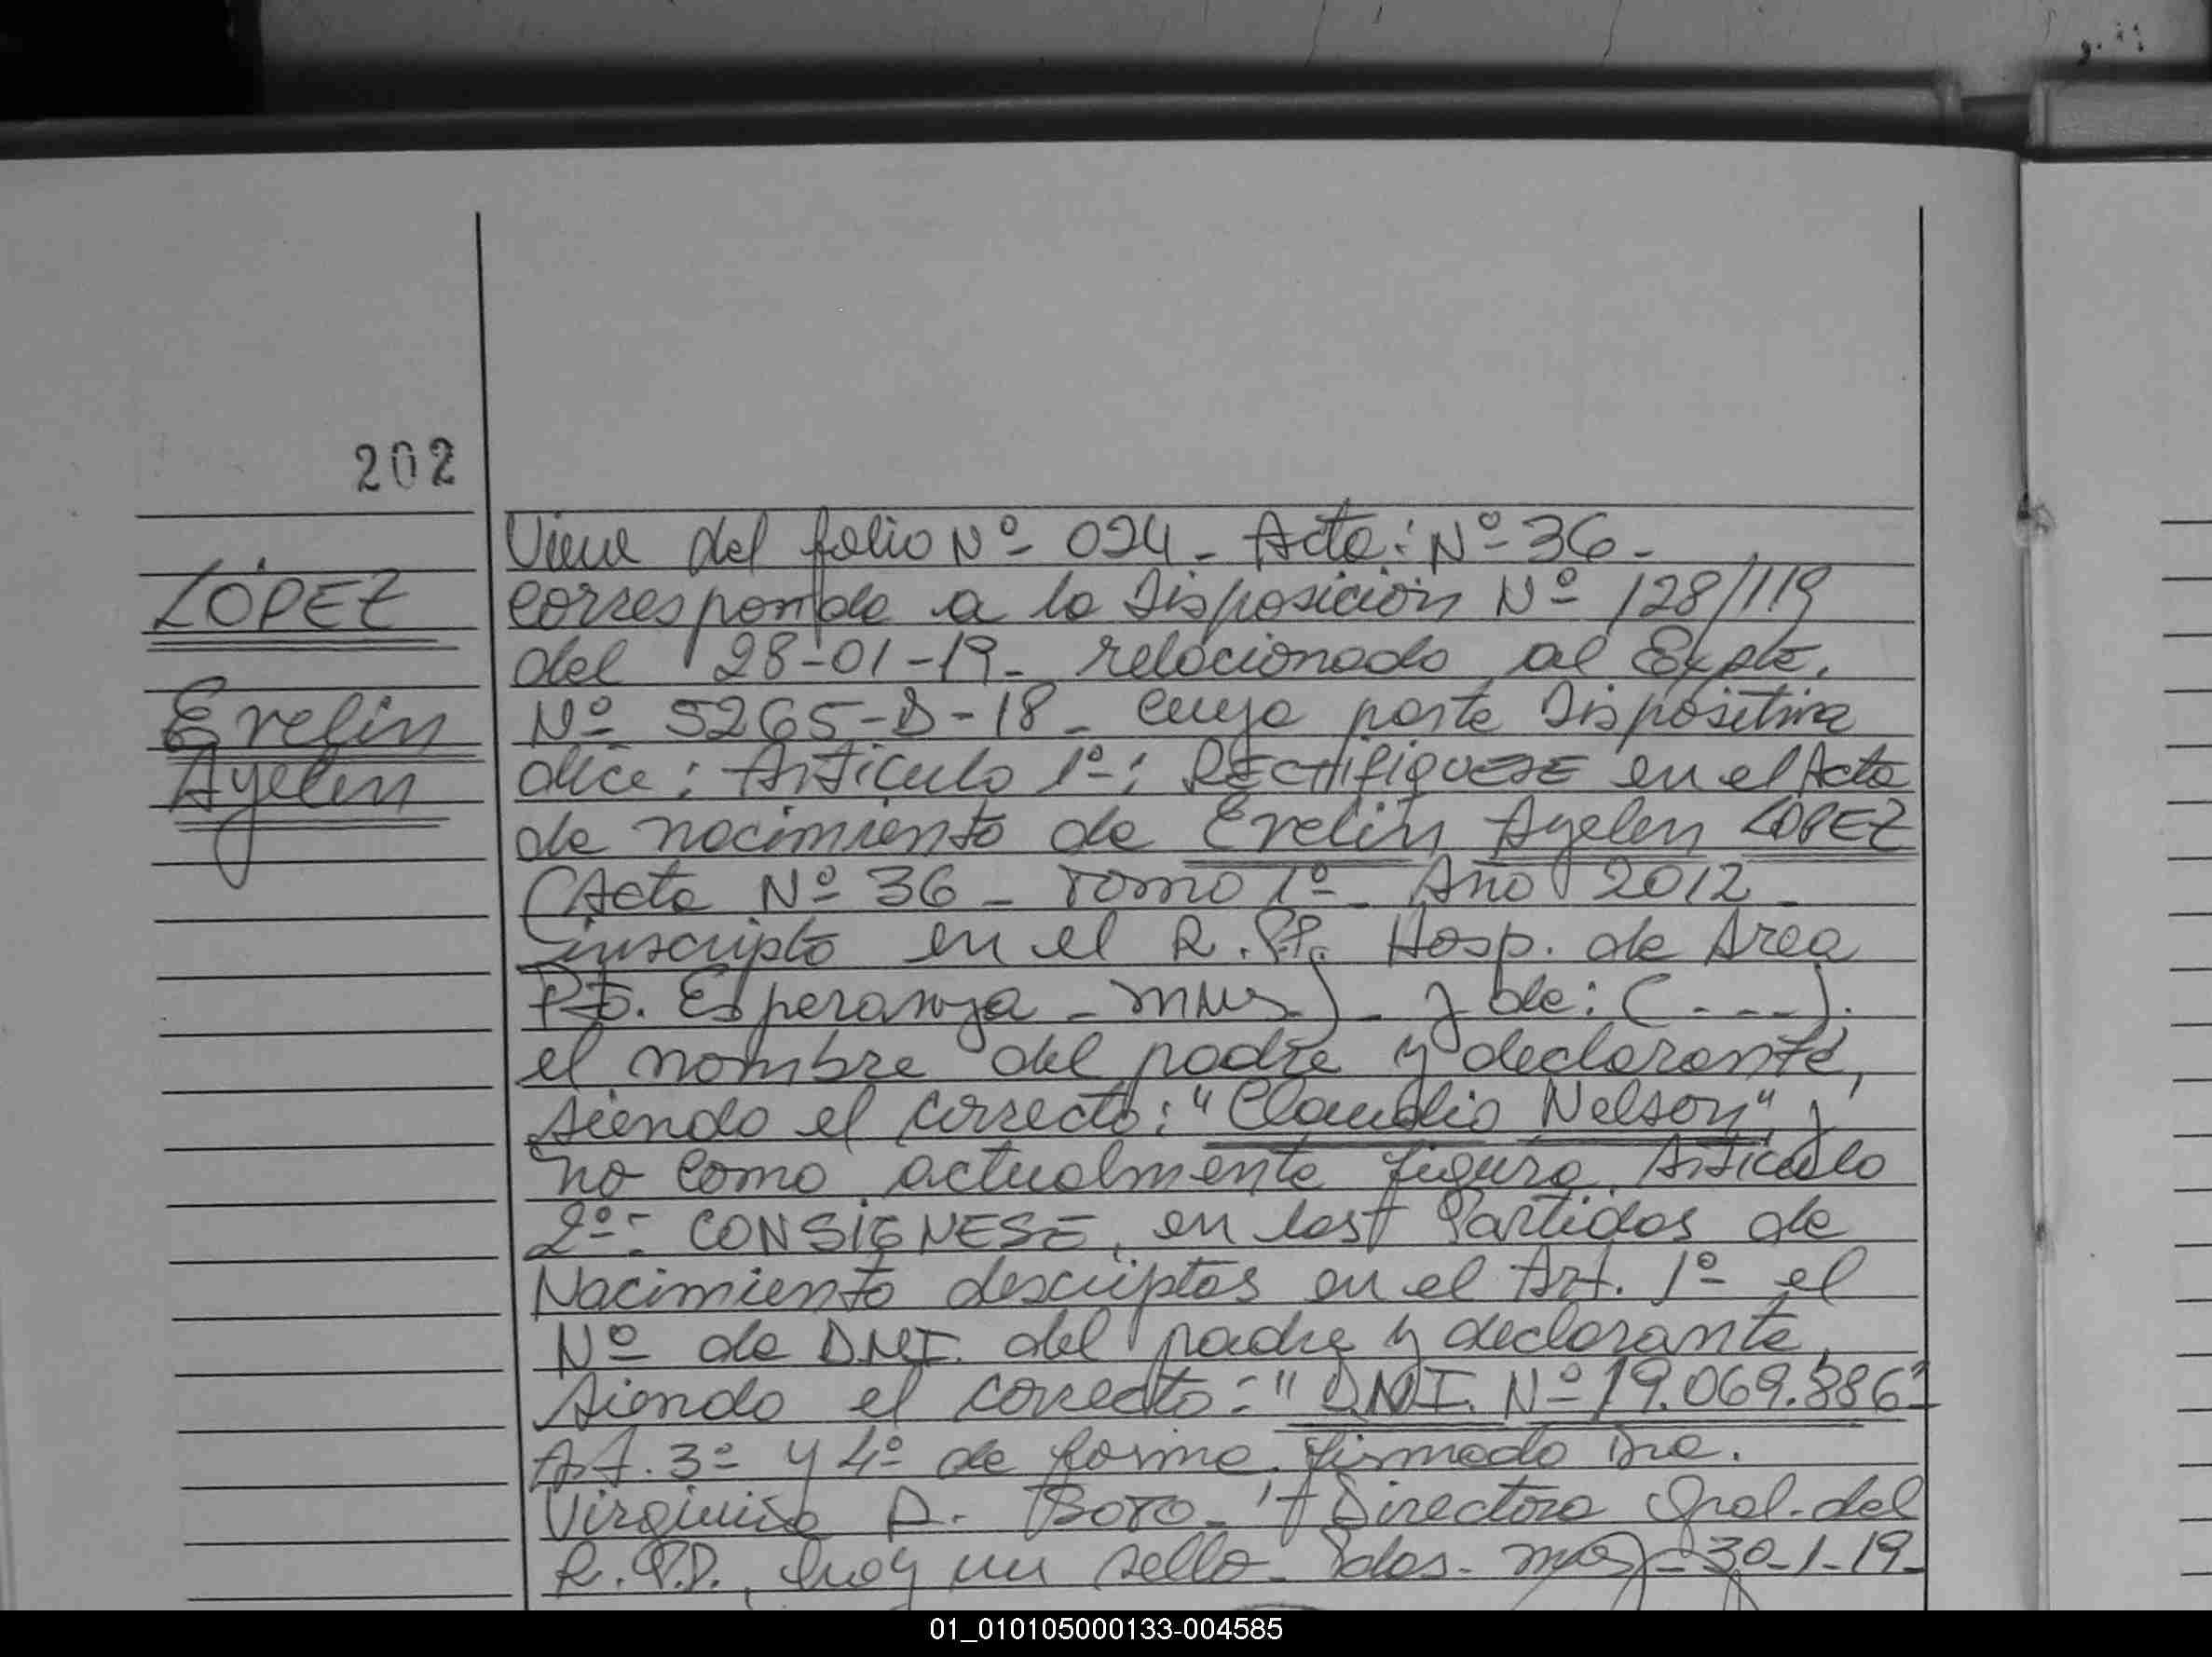 202
LÓPEZ
Evelin
Ayelen
Viene del folio Nº 024 - Acta: Nº 36 -
corresponde a la Disposición Nº 128/119
del 28-01-19 - relacionado al Expte.
Nº 5265-D-18 - cuya parte Dispositiva
dice: Artículo 1º: RECTIFIQUESE en el Acta
de nacimiento de Evelin Ayelen LÓPEZ
(Acta Nº 36 - Tomo 1º - Año 2012 -
inscripto en el R.P.P. Hosp. de Area
Pto. Esperanza - mnes) - y de: (---).
el nombre del padre y declarante,
siendo el correcto: "Claudio Nelson", y
no como actualmente figura. Artículo
2º: CONSIGNESE, en las Partidas de
Nacimiento descriptas en el Art. 1º el
Nº de D.N.I. del padre y declarante,
siendo el correcto: "D.N.I. Nº 19.069.886"-
Art. 3º y 4º de forma. Firmado Dra.
Virginia A. - Directora Gral. del
R.P.P., hay un sello - Pdas. - 30-1-19-
01_010105000133-004585